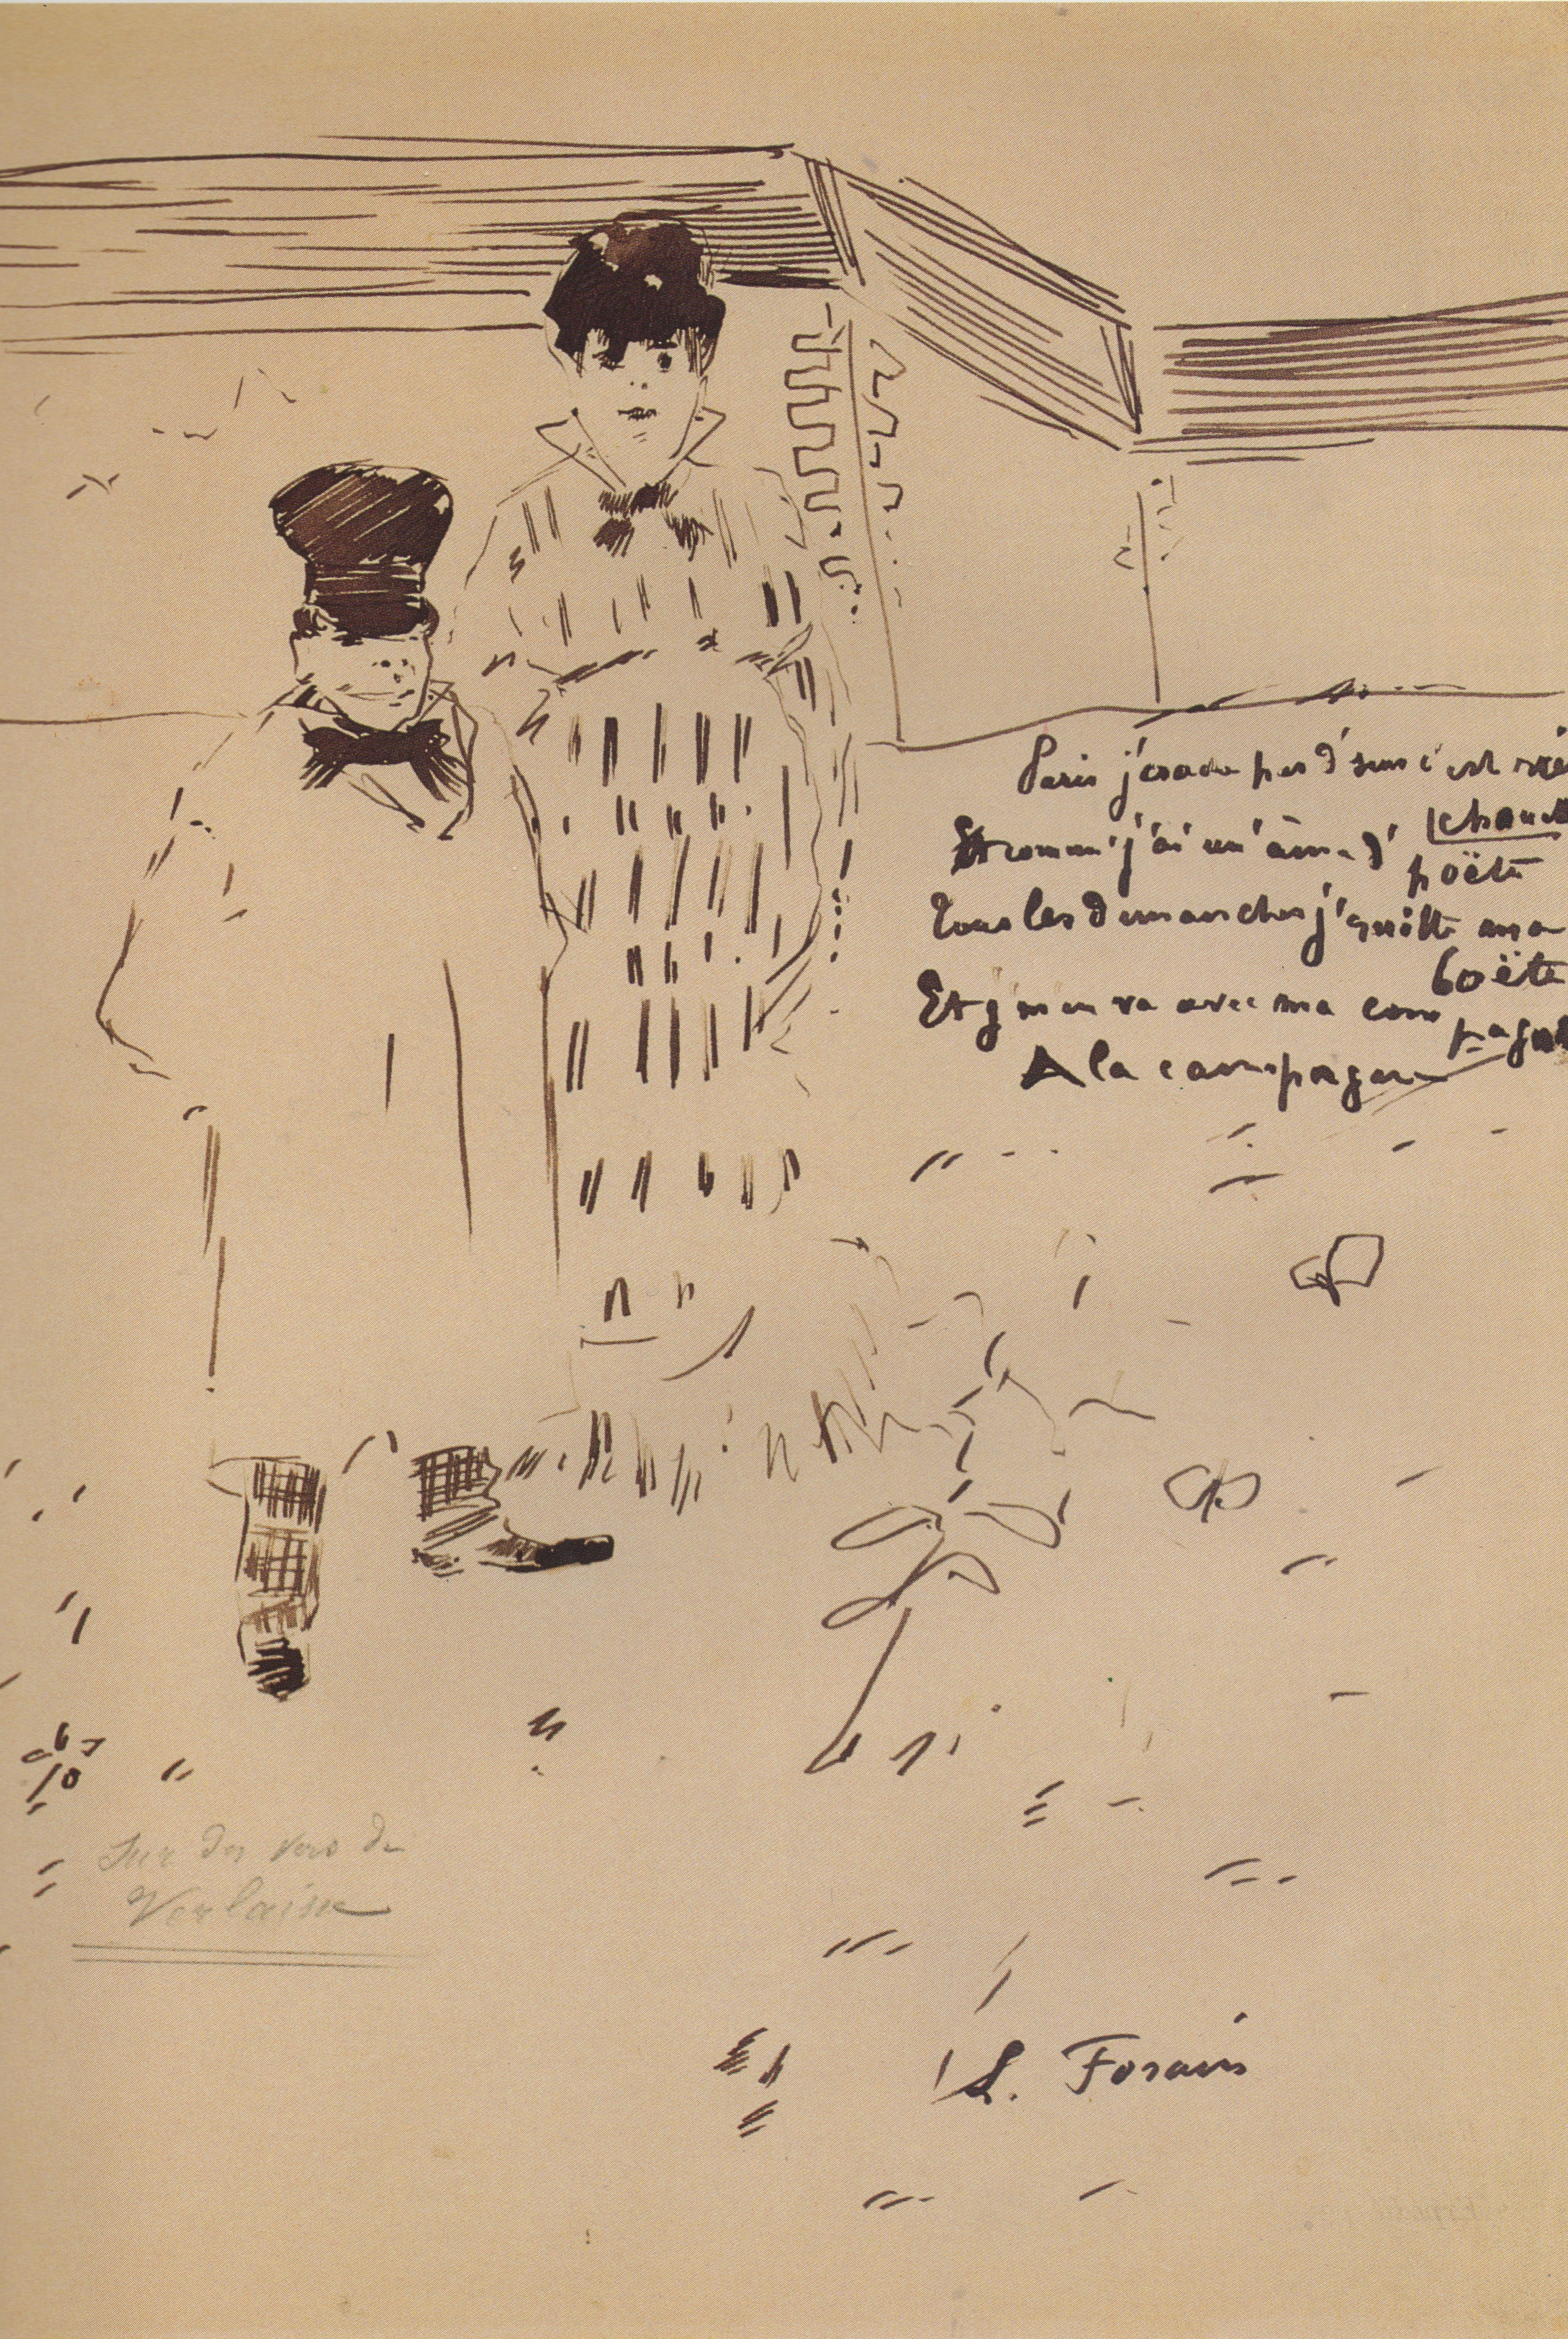 Paris j'crach' pas d'ssus c'est
chouett
Et comm' j'ai un' âme d'
poëte
Tous les dimanches j'quitte ma
boëte
Et j'm'en va avec ma com
pagne
A la campagne
Sur des vers de
Verlaine
L. Forain